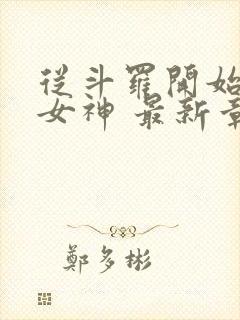 從斗羅開始
女神 最新章
鄭多彬